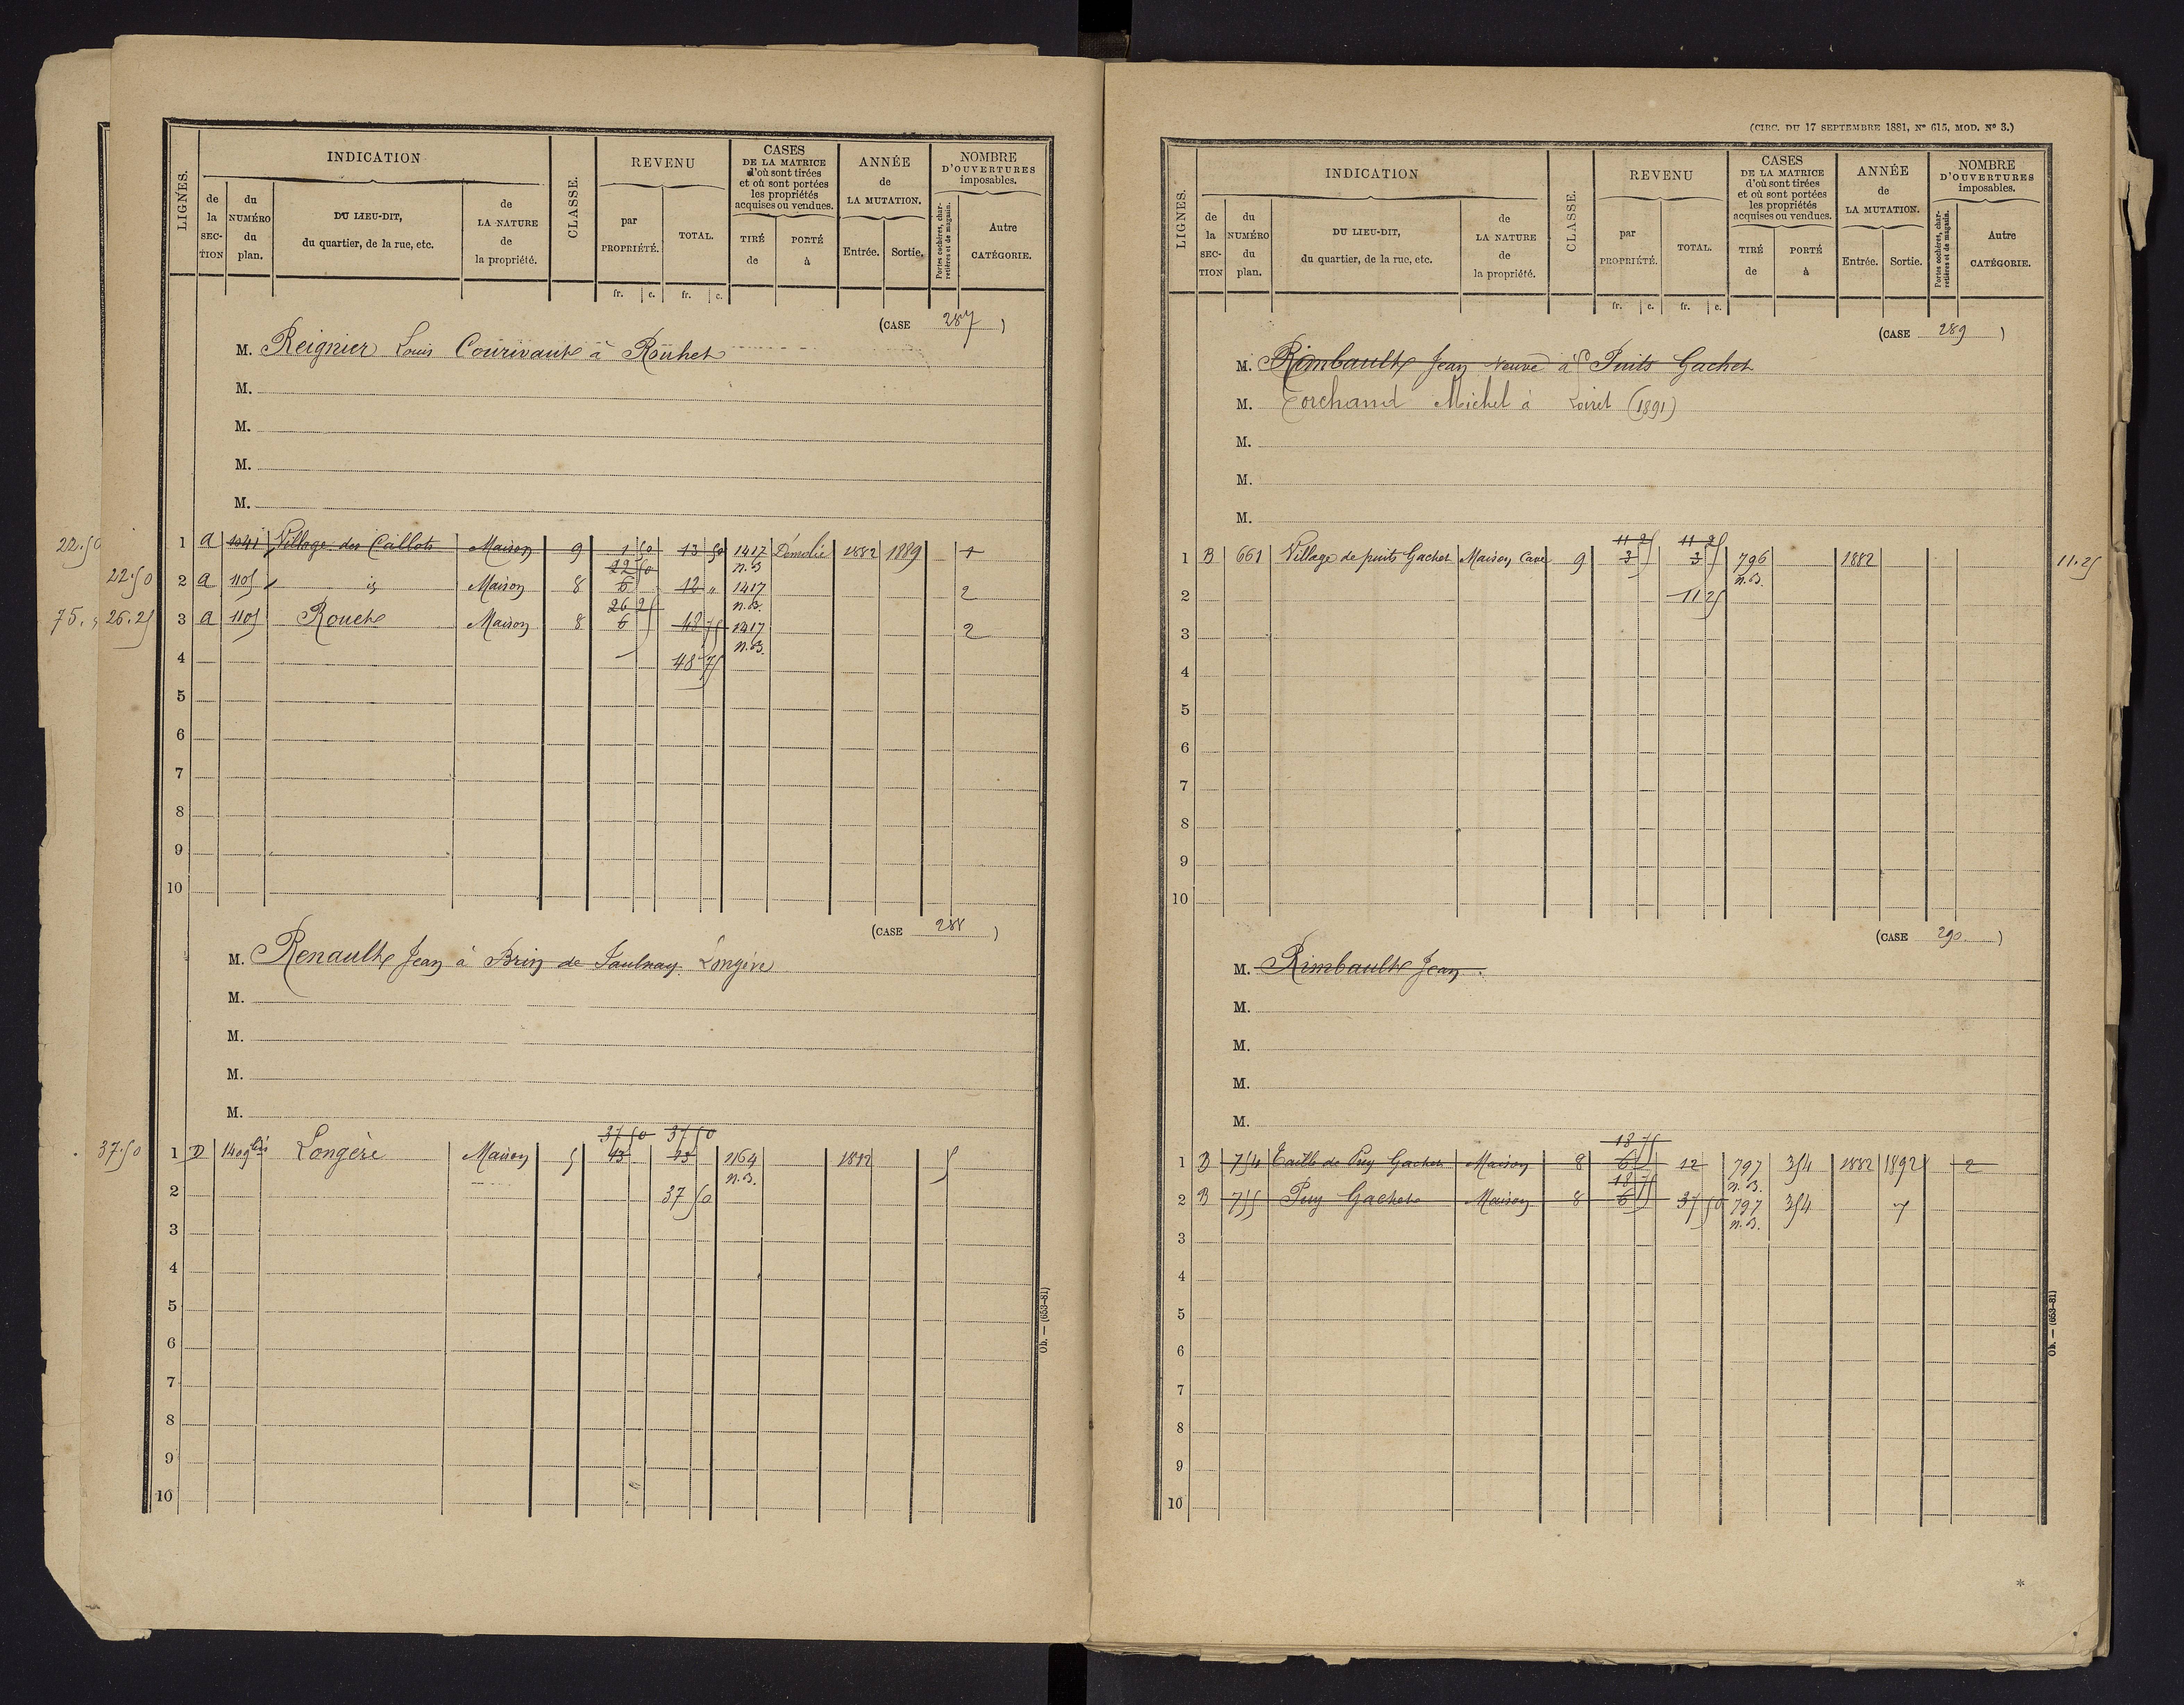 LIGNES.
INDICATION
de la SECTION
du NUMÉRO du plan.
DU LIEU-DIT, du quartier, de la rue, etc.
de LA NATURE de la propriété.
CLASSE.
REVENU
par PROPRIÉTÉ.
TOTAL.
fr. c. fr. c.
CASES DE LA MATRICE d'où sont tirées et où sont portées les propriétés acquises ou vendues.
TIRÉ de
PORTÉ à
ANNÉE de LA MUTATION.
Entrée. Sortie.
NOMBRE D'OUVERTURES imposables.
Portes cochères, charretières et de magasin.
Autre CATÉGORIE.
(CASE 287)
M. Reignier Louis Courivault à Rouhet
M.
M.
M.
M.
22.50
1 a 1041 Village des Caillots Maison 9 1 50 13 50 1417 n.B. Démolie 1882 1889 1
22.50
22 50
2 a 1105 id Maison 8 6 12 " 1417 n.B. 2
75. 26.25
26 25
3 a 1105 Rouet Maison 8 6 48 75 1417 n.B. 2
4 48 75
5
6
7
8
9
10
(CASE 288)
M. Renault Jean à Brin de Saulnay. Longère
M.
M.
M.
M.
37 50 37 50
37.50 1 D 1409 bis Longère Maison 5 13 13 1164 n.B. 1882 5
2 37 50
3
4
5
6
7
8
9
10
Ob. — (653-81)
(CIRC. DU 17 SEPTEMBRE 1881, Nº 615, MOD. Nº 3.)
LIGNES.
INDICATION
de la SECTION
du NUMÉRO du plan.
DU LIEU-DIT, du quartier, de la rue, etc.
de LA NATURE de la propriété.
CLASSE.
REVENU
par PROPRIÉTÉ.
TOTAL.
fr. c. fr. c.
CASES DE LA MATRICE d'où sont tirées et où sont portées les propriétés acquises ou vendues.
TIRÉ de
PORTÉ à
ANNÉE de LA MUTATION.
Entrée. Sortie.
NOMBRE D'OUVERTURES imposables.
Portes cochères, charretières et de magasin.
Autre CATÉGORIE.
(CASE 289)
M. Rimbault Jean veuve à Puits Gachet
M. Torchand Michel à Loiret (1891)
M.
M.
M.
11 25 11 25
1 B 661 Village de puits Gachet Maison, Cave 9 3 3 796 n.B. 1882 11.25
2 11 25
3
4
5
6
7
8
9
10
(CASE 290)
M. Rimbault Jean
M.
M.
M.
M.
18 75
1 B 754 Taille de Puy Gachet Maison 8 6 12 797 n.B. 354 1882 1892 2
18 75
2 B 755 Puy Gachet Maison 8 6 37 50 797 n.B. 354
3
4
5
6
7
8
9
10
Ob. — (653-81)
*